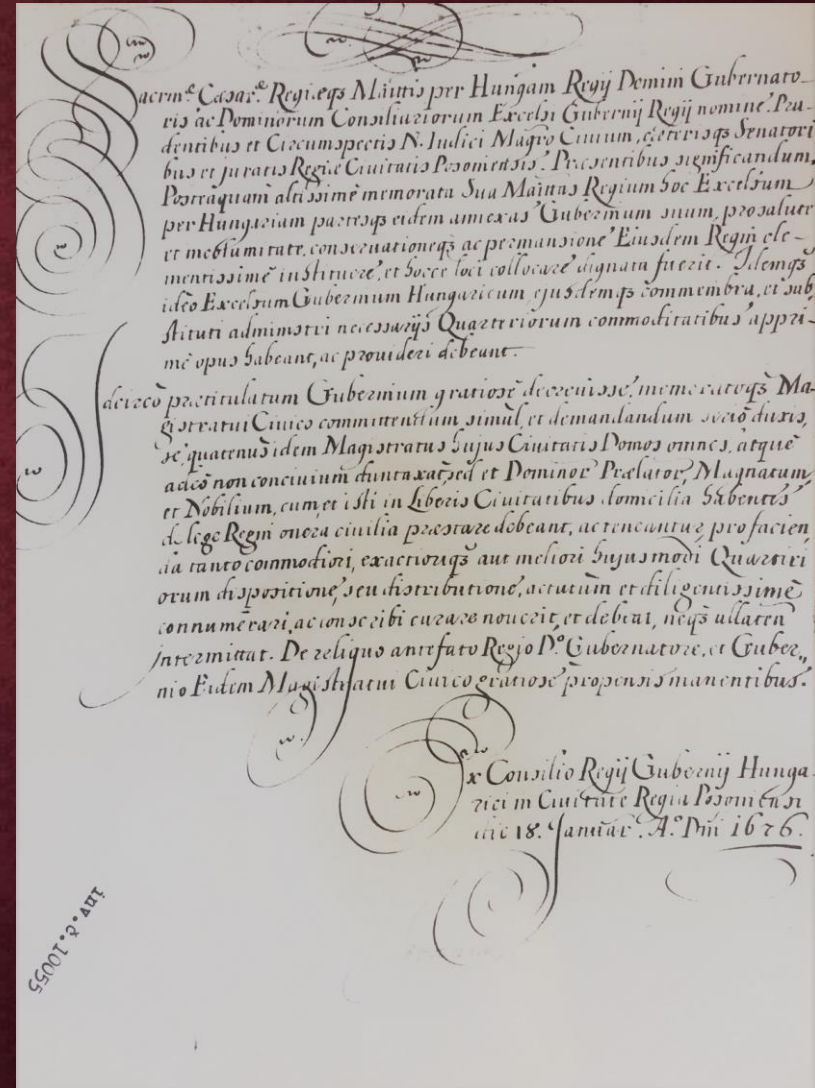 Sacrm.ᵉ Cæsar.ᵉ Regi.æqꝫ Mãttis per Hungãm Regij Domini Gubernato-
ris ac Dominorum Consiliariorum Excelsi Gubernij Regij nomine. Pru-
dentibus et Circumspectis N. Iudici Magro Civium, cæterisqꝫ Senatori
bus et juratis Regiæ Civitatis Posoniensis. Præsentibus significandum.
Posteaquam altissimè memorata Sua Mãttas Regium hoc Excelsum
per Hungariam partesqꝫ eidem annexas Gubernium suum, pro salute
et incolumitate, conservationeqꝫ ac permansione Eiusdem Regni cle-
mentissimè instituere, et hocce loci collocare dignata fuerit. Idemqꝫ
ideò Excelsum Gubernium Hungaricum, ejusdemqꝫ commembra, et sub
stituti administri necessarijs Quarteriorum commoditatibus appri-
mè opus habeant, ac provideri debeant.
Idcircò prætitulatum Gubernium gratiosè decrevisse, memoratoqꝫ Ma-
gistratui Civico committendum simul, et demandandum seriò duxis,
se, quatenus idem Magistratus hujus Civitatis Domos omnes, atque
adeò non concivium duntaxat, sed et Dominor Prælator, Magnatum,
et Nobilium, cum et isti in Liberis Civitatibus domicilia habentes
de lege Regni onera civilia præstare debeant, ac teneantur, pro facien
da tanto commodiori, exactioriqꝫ aut meliori hujusmodi Quartiri
orum dispositione, seu distributione, actutum et diligentissimè
connumerari, ac conscribi curare noverit, et debeat, neqꝫ ullaten
intermittat. De reliquo antefato Regio D.º Gubernatore, et Guber„
nio Eidem Magistratui Civico gratiosè propensis manentibus.
Ex Consilio Regij Gubernij Hunga
rici in Civitate Regia Posoniensi
die 18. Januar. A.º Dñi 1676.
inv.č.10055